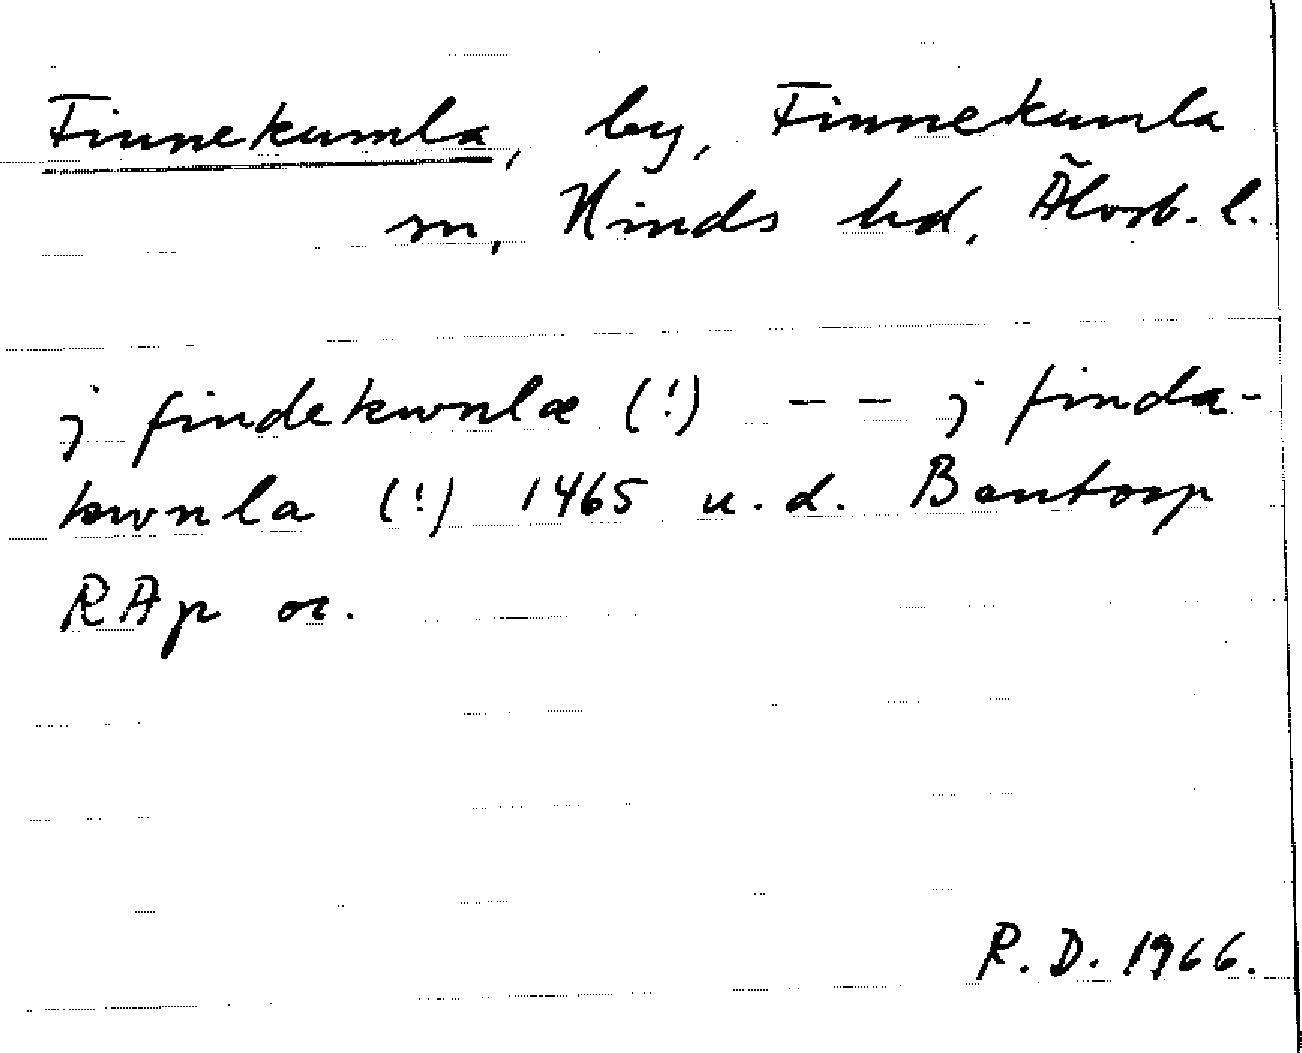 Finnekumla, by, Finnekumla
sn, Kinds hd, Älvsb. l.
j findekwnlæ (!) -- j finda-
kwnla (!) 1465 u.d. Bantorp
RAp or.
R.D. 1966.